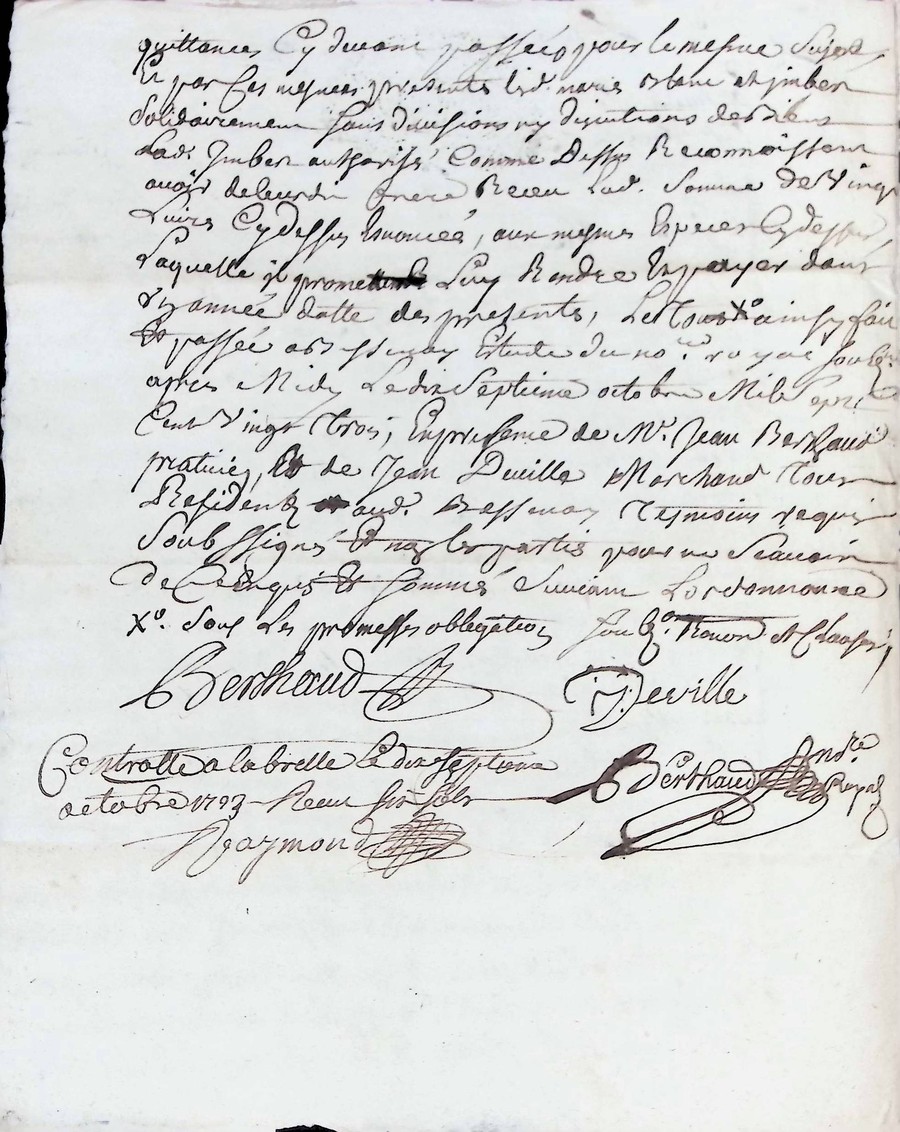 quittances Cy devant passées pour le mesme sujet
Et par Ces mesmes presentes led. marie blanc et imbert
Solidairement sans divisions ny discutions de biens
Lad. Imbert authorisée Comme Dessus Reconnoissent
avoir Receu Lad. Somme de Vingt
Livres Cy dessus Enoncée, aux mesmes Especes Cy dessus
Laquelle il Luy Rendre Et payer dans
année datte des presentes, Le Tout ainsy fait
Et passée a Bessenay Estude du no.re royal soub.né
apres Midy Le dix Septieme octobre Mil Sept
Cent Vingt Trois, En presence de Mr. Jean Berthaud
praticien, Et de Jean Deville Marchand Tous
Residents aud. Bessenay Tesmoins requis
Soubssignés Et non les parties pour ne Scavoir
De Ce Enquis Et sommés Suivant Lordonnance
Xo. Sous Les promesses obligations Renon. et Clauses,
Berthaud J. Deville
Controlle a labrelle Le dix septieme
octobre 1723 Receu six sols Berthaud No.re Royal
Raymond